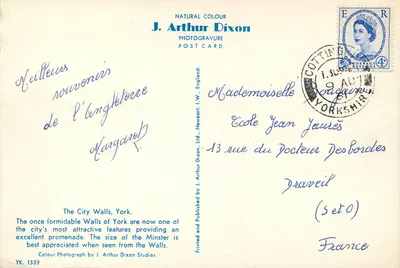 NATURAL COLOUR
J. Arthur Dixon
PHOTOGRAVURE
POST CARD
E R
4D
COTTING
9 AU
YORKSHIRE
Meilleurs
souvenirs
de l'Angleterre
Margaret
Mademoiselle
Ecole Jean Jaurès
13 rue du Docteur Desbordes
Draveil
(S et O)
France
Printed and Published by J. Arthur Dixon Ltd., Newport, I.W., England.
The City Walls, York.
The once formidable Walls of York are now one of
the city's most attractive features providing an
excellent promenade. The size of the Minster is
best appreciated when seen from the Walls.
Colour Photograph by J. Arthur Dixon Studios.
YK. 1339